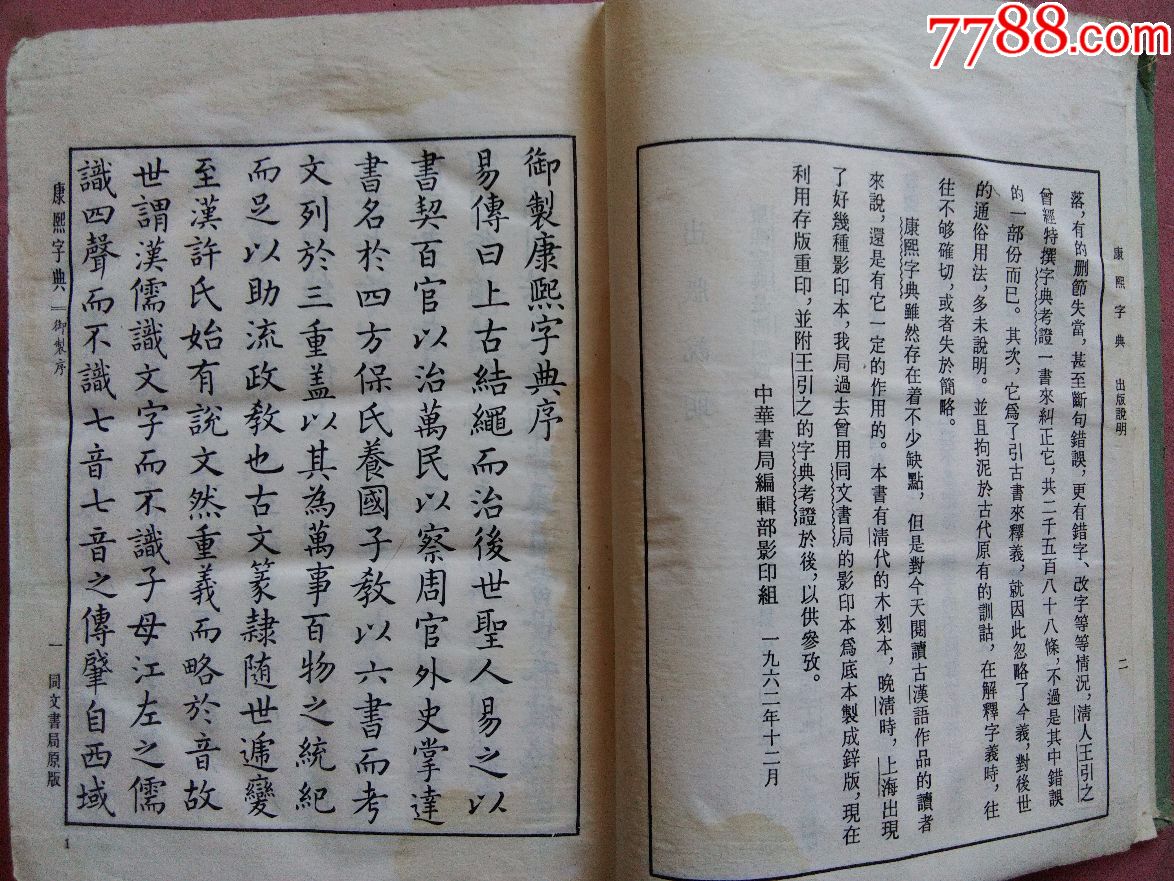 7788.com
康熙字典 出版說明
二
落，有的删節失當，甚至斷句錯誤，更有錯字、改字等等情況，清人王引之
曾經特撰字典考證一書來糾正它，共二千五百八十八條，不過是其中錯誤
的一部份而已。其次，它爲了引古書來釋義，就因此忽略了今義，對後世
的通俗用法，多未說明。並且拘泥於古代原有的訓詁，在解釋字義時，往
往不够確切，或者失於簡略。
康熙字典雖然存在着不少缺點，但是對今天閱讀古漢語作品的讀者
來說，還是有它一定的作用的。本書有清代的木刻本，晚清時，上海出現
了好幾種影印本，我局過去曾用同文書局的影印本爲底本製成鋅版，現在
利用存版重印，並附王引之的字典考證於後，以供參攷。
中華書局編輯部影印組 一九六二年十二月
御製康熙字典序
易傳曰上古結繩而治後世聖人易之以
書契百官以治萬民以察周官外史掌達
書名於四方保氏養國子教以六書而考
文列於三重蓋以其為萬事百物之統紀
而足以助流政教也古文篆隷隨世遞變
至漢許氏始有說文然重義而略於音故
世謂漢儒識文字而不識子母江左之儒
識四聲而不識七音七音之傳肇自西域
康熙字典 御製序
一 同文書局原版
1